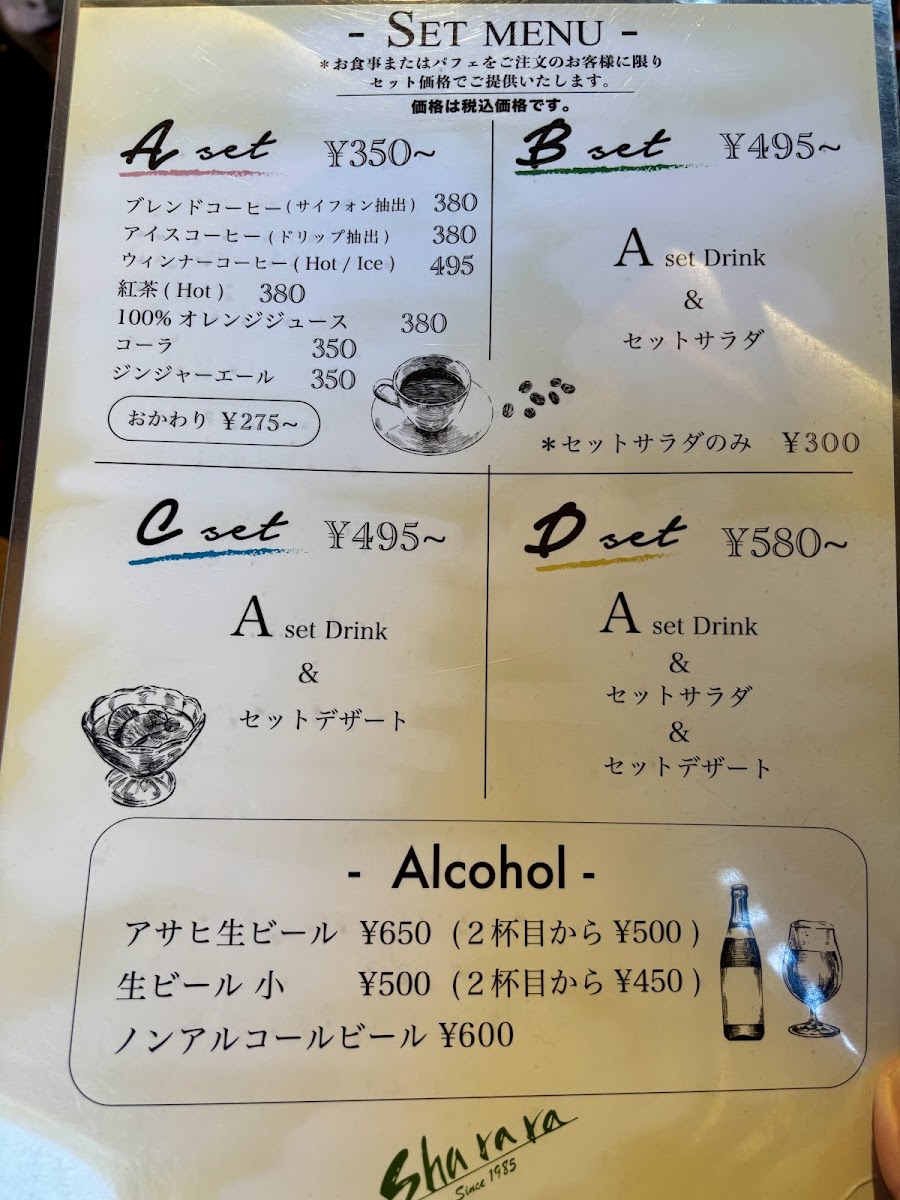 - SET MENU -
＊お食事またはパフェをご注文のお客様に限り
セット価格でご提供いたします。
価格は税込価格です。
A set ¥350~
ブレンドコーヒー(サイフォン抽出) 380
アイスコーヒー(ドリップ抽出) 380
ウィンナーコーヒー(Hot / Ice) 495
紅茶(Hot) 380
100% オレンジジュース 380
コーラ 350
ジンジャーエール 350
おかわり ¥275~
B set ¥495~
A set Drink
&
セットサラダ
＊セットサラダのみ ¥300
C set ¥495~
A set Drink
&
セットデザート
D set ¥580~
A set Drink
&
セットサラダ
&
セットデザート
- Alcohol -
アサヒ生ビール ¥650 (２杯目から ¥500)
生ビール 小 ¥500 (２杯目から ¥450)
ノンアルコールビール ¥600
Sharara
Since 1985